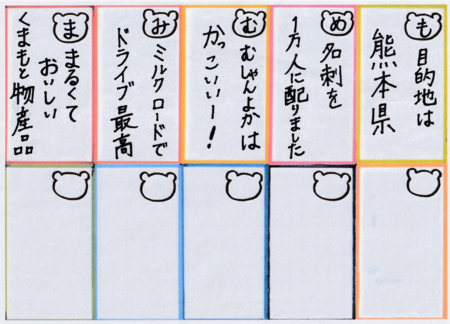 も
目的地は
熊本県
め
名刺を
1万人に配りました
む
むしゃんよかは
かっこいいー!
み
ミルクロードで
ドライブ最高
ま
まるくて
おいしい
くまもと物産品